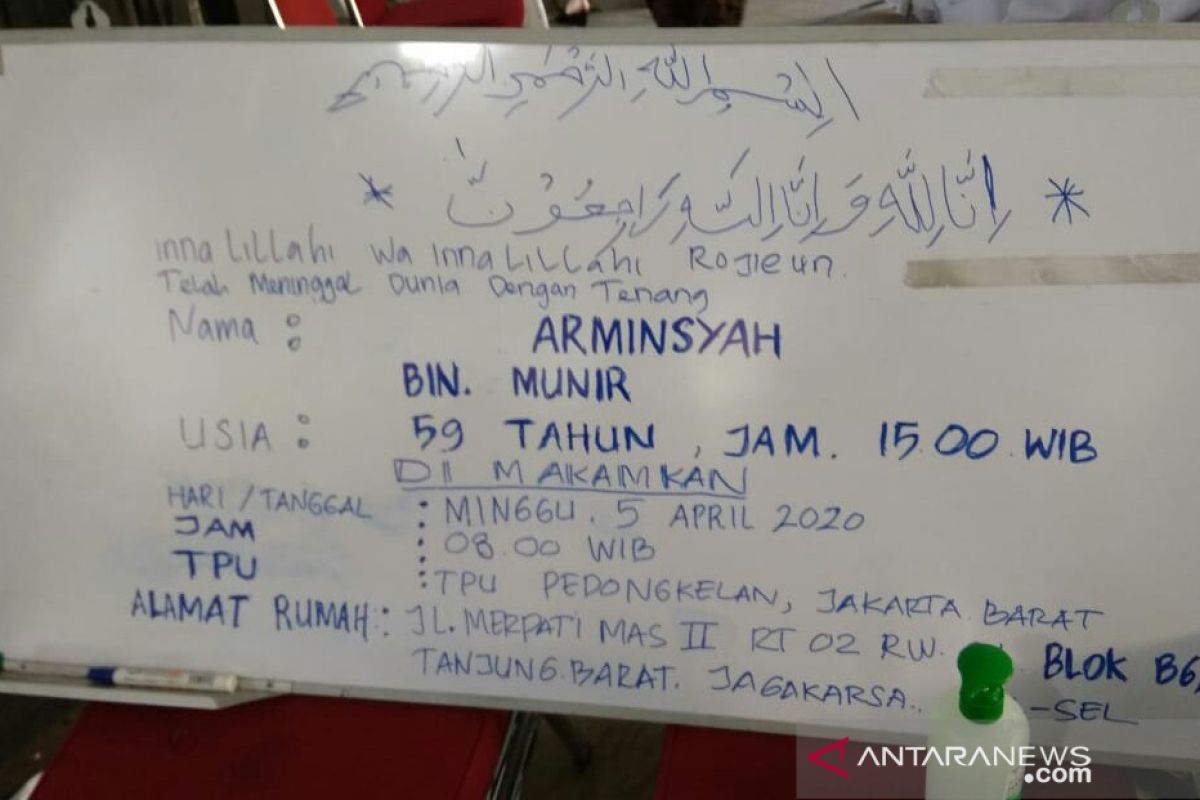 بِسْمِ اللّٰهِ الرَّحْمٰنِ الرَّحِيْمِ
* اِنَّا لِلّٰهِ وَاِنَّا اِلَيْهِ رَاجِعُوْنَ *
inna Lillahi wa inna Lillahi Rojieun.
Telah Meninggal Dunia Dengan Tenang
Nama : ARMINSYAH
BIN. MUNIR
USIA : 59 TAHUN , JAM. 15.00 WIB
DI MAKAMKAN
HARI / TANGGAL : MINGGU. 5 APRIL 2020
JAM : 08.00 WIB
TPU : TPU PEDONGKELAN, JAKARTA BARAT
ALAMAT RUMAH : JL. MERPATI MAS II RT 02 RW. BLOK B6
TANJUNG BARAT. JAGAKARSA.. -SEL
ANTARANEWS
.com